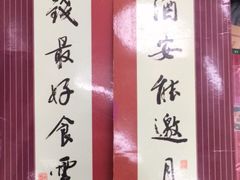 酒安能邀月
錢最好食雲